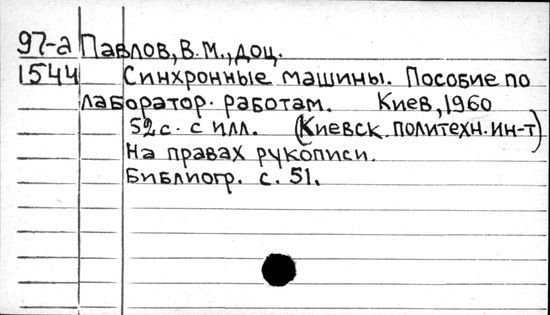 97-а Павлов, В.М., доц.
1544 Синхронные машины. Пособие по
лаборатор. работам. Киев, 1960
52с. с илл. (Киевск. политехн. ин-т)
На правах рукописи.
Библиогр. с. 51.